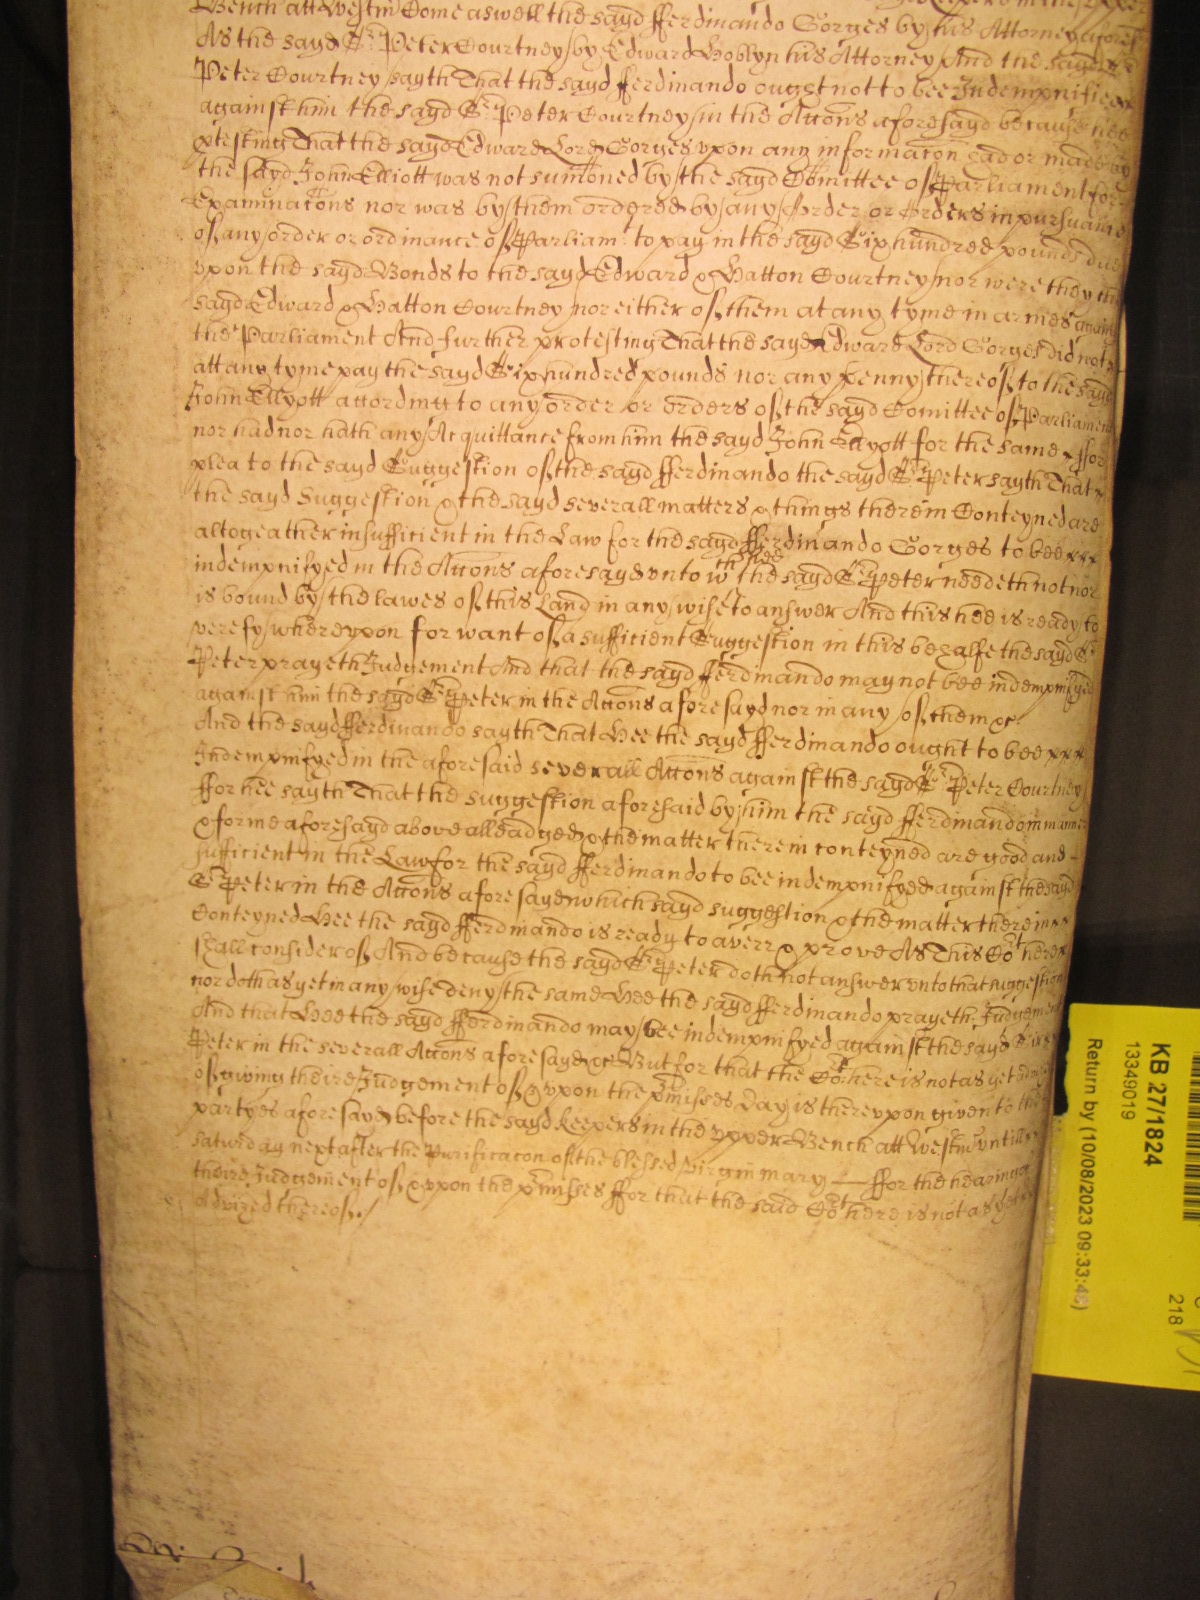 Bench att Westm Come aswell the sayd Fferdinando Gorges by his Attorney aforesd
As the sayd Sr Peter Courtney by Edward Hoblyn his Attorney And the sayd Sr
Peter Courtney sayth That the sayd fferdinando ought not to bee Indempnifiee
against him the sayd Sr Peter Courtney in the Accons aforesayd because hee
ptesting That the sayd Edward Lord Gorges vpon any informacon had or made by
the sayd John Elliott was not sumoned by the sayd Comittee of Parliament for
Examinacons nor was by them ordered by any order or orders in pursuance
of any order or ordinance of Parliamt to pay in the sayd Six hundred pounds due
vpon the sayd Bonds to the sayd Edward & Hatton Courtney nor were they the
sayd Edward & Hatton Courtney nor either of them at any tyme in armes against
the Parliament And further protesting That the sayd Edward Lord Gorges did not
att any tyme pay the sayd Six hundred pounds nor any penny thereof to the sayd
John Ellyott according to any order or orders of the sayd Comittee of Parliament
nor had nor hath any Acquittance from him the sayd John Ellyott for the same & ffor
plea to the sayd Suggestion of the sayd fferdinando the sayd Sr Peter sayth That
the sayd Suggestion & the sayd severall matters & things therein Conteyned are
altogeather insufficient in the Law for the sayd fferdinando Gorges to bee
indempnifyed in the Accons aforesayd vnto wch hee the sayd Sr Peter needeth not nor
is bound by the lawes of this Land in any wise to answer And this hee is ready to
verefy whereupon for want of a sufficient Suggestion in this behalfe the sayd Sr
Peter prayeth Judgement And that the sayd fferdinando may not bee indempnifyed
against him the sayd Sr Peter in the Accons aforesayd nor in any of them &c
And the sayd fferdinando sayth That Hee the sayd fferdinando ought to bee
Indempnifyed in the aforesaid severall Accons against the sayd Sr Peter Courtney
ffor hee sayth That the suggestion aforesaid by him the sayd fferdinando in manner
& forme aforesayd above alleadged & the matter therein conteyned are good and
sufficient in the Law for the sayd fferdinando to bee indempnifyed against the sayd
Sr Peter in the Accons aforesayd which sayd suggestion & the matter therein
Conteyned Hee the sayd fferdinando is ready to averr & prove As This Cort here
shall consider of And because the sayd Sr Peter doth not answer vnto that suggestion
nor doth as yet in any wise deny the same Hee the sayd fferdinando prayeth Judgement
And that Hee the sayd fferdinando may bee indempnifyed against the sayd Sir
Peter in the severall Accons aforesayd &c But for that the Cort here is not as yet advised
of giving theire Judgement of & vpon the pmisses Day is therevpon given to the
partyes aforesayd before the sayd keepers in the vpper Bench att Westm vntill
saturday next after the Purificacon of the blessed virgin mary — ffor the hearing of
theire Judgement of & vpon the pmisses ffor that the said Cort here is not as yet
Advized thereof./
KB 27/1824
13349019
218
Return by (10/08/2023 09:33:48)